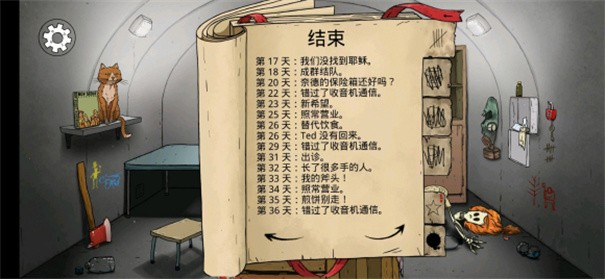 结束
第 17 天：我们没找到耶稣。
第 18 天：成群结队。
第 20 天：奈德的保险箱还好吗？
第 22 天：错过了收音机通信。
第 23 天：新希望。
第 25 天：照常营业。
第 26 天：替代饮食。
第 26 天：Ted 没有回来。
第 29 天：错过了收音机通信。
第 31 天：出诊。
第 32 天：长了很多手的人。
第 33 天：我的斧头！
第 34 天：照常营业。
第 35 天：煎饼别走！
第 36 天：错过了收音机通信。